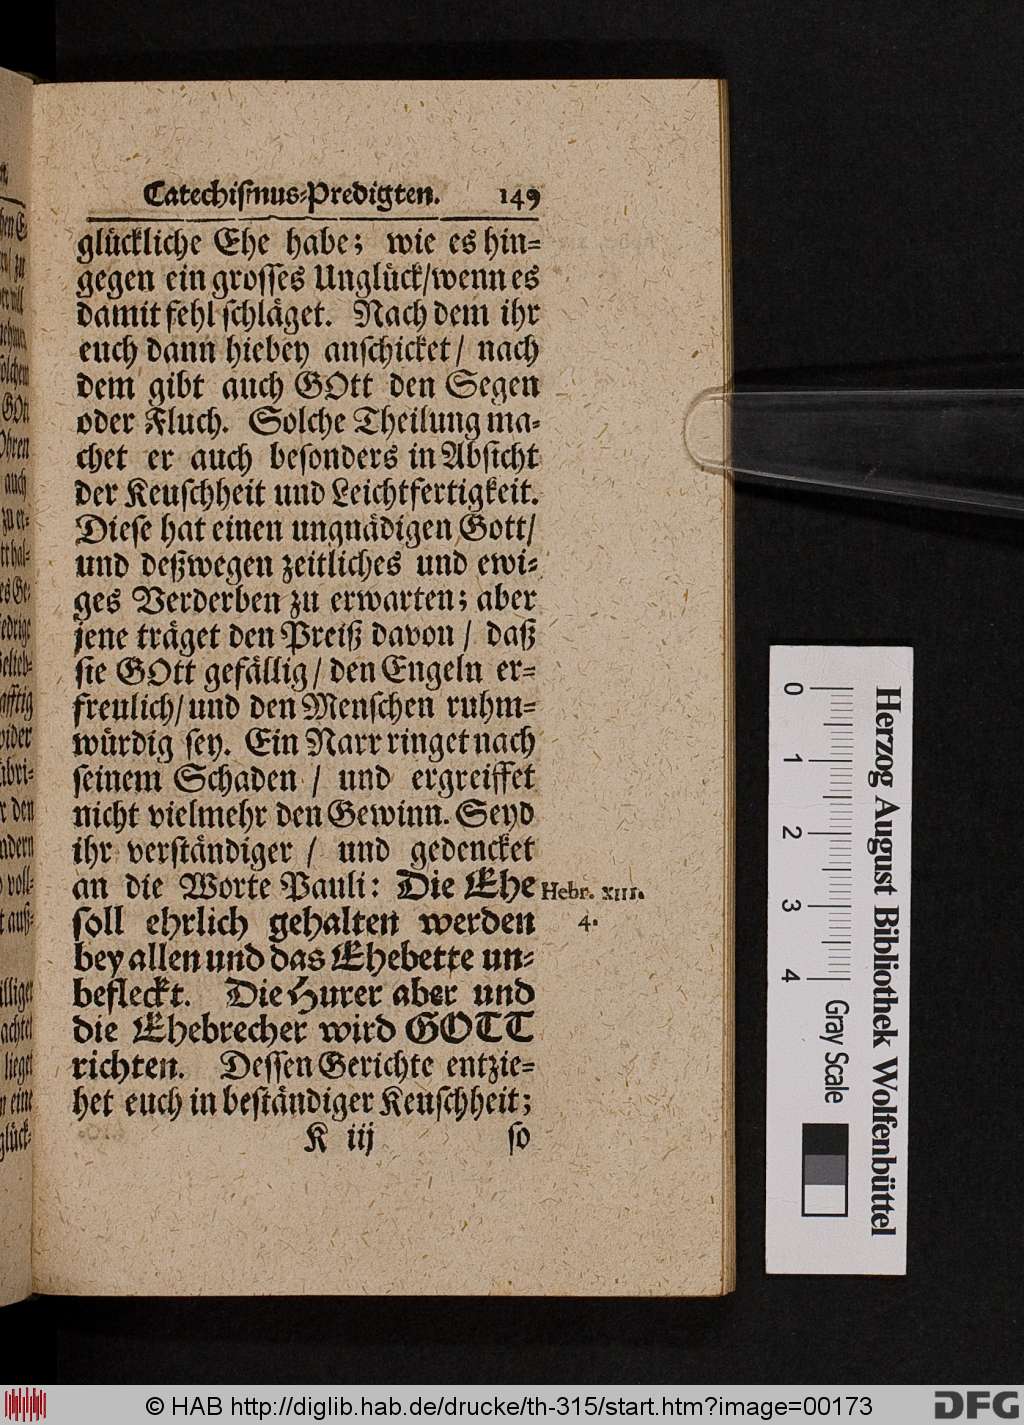 Catechiſmus-Predigten. 149
glückliche Ehe habe; wie es hin-
gegen ein groſſes Unglück/wenn es
damit fehl ſchläget. Nach dem ihr
euch dann hiebey anſchicket/ nach
dem gibt auch GOtt den Segen
oder Fluch. Solche Theilung ma-
chet er auch beſonders in Abſicht
der Keuſchheit und Leichtfertigkeit.
Dieſe hat einen ungnädigen Gott/
und deßwegen zeitliches und ewi-
ges Verderben zu erwarten; aber
jene träget den Preiß davon / daß
ſie GOtt gefällig/ den Engeln er-
freulich/ und den Menſchen ruhm-
würdig ſey. Ein Narr ringet nach
ſeinem Schaden / und ergreiffet
nicht vielmehr den Gewinn. Seyd
ihr verſtändiger / und gedencket
an die Worte Pauli: Die Ehe
ſoll ehrlich gehalten werden
bey allen und das Ehebette un-
befleckt. Die Hurer aber und
die Ehebrecher wird GOTT
richten. Deſſen Gerichte entzie-
het euch in beſtändiger Keuſchheit;
K iij ſo
Hebr. XIII.
4.
Herzog August Bibliothek Wolfenbüttel
0 1 2 3 4 Gray Scale
© HAB http://diglib.hab.de/drucke/th-315/start.htm?image=00173
DFG